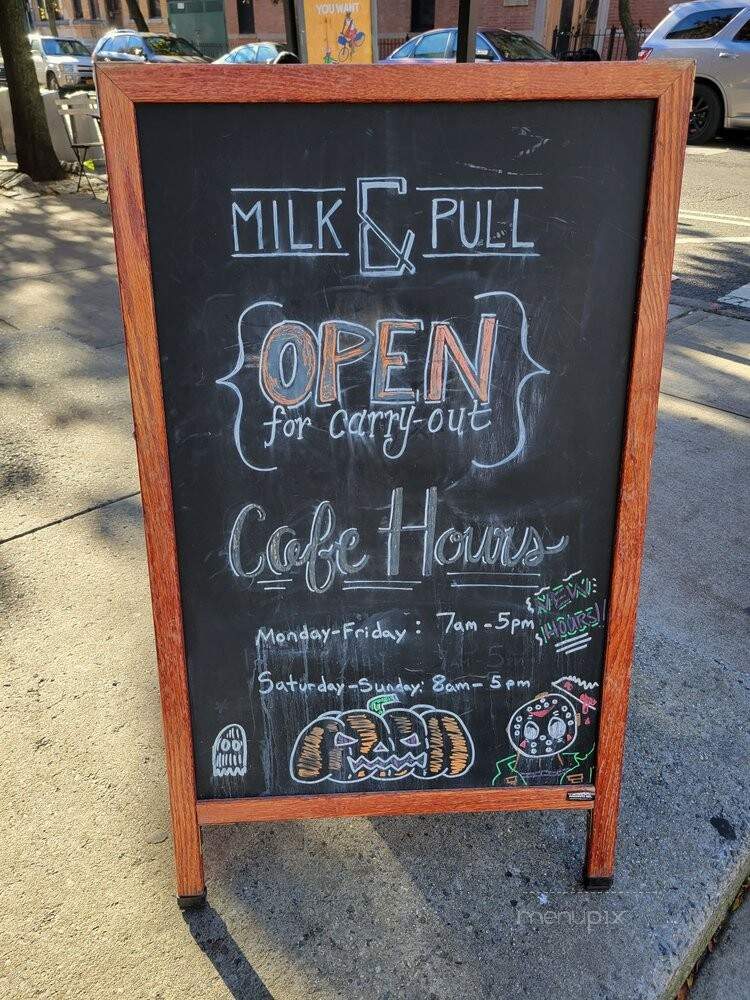 YOU WANT
MILK & PULL
OPEN
for carry-out
Cafe Hours
NEW
HOURS!
Monday-Friday: 7am-5pm
Saturday-Sunday: 8am-5pm
menupix